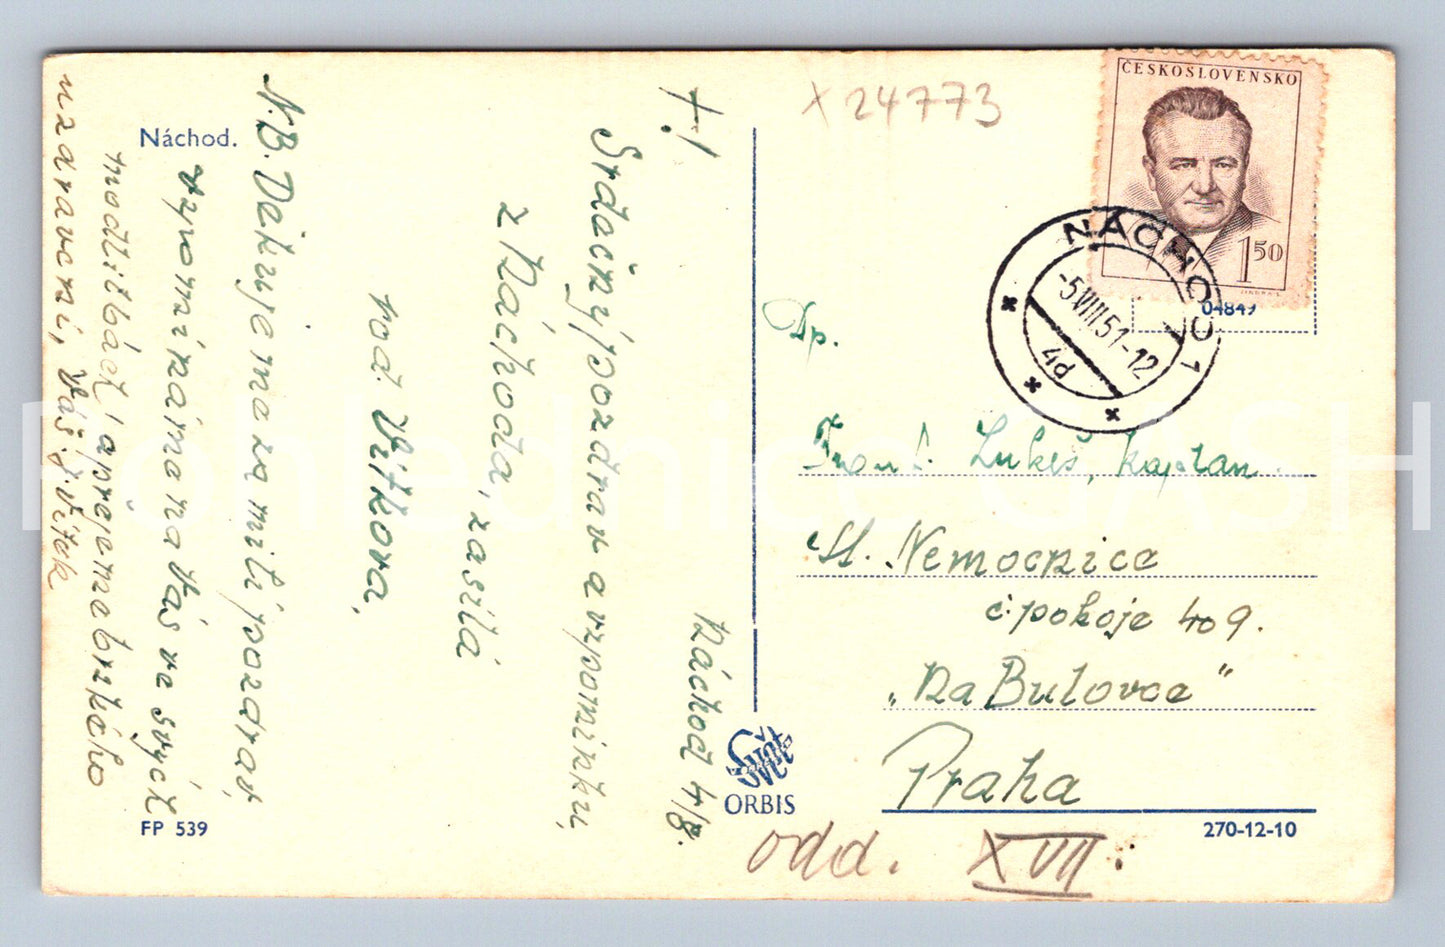 Náchod.
X 24773
ČESKOSLOVENSKO
1 50
04849
NÁCHOD 1
-5.VIII.51-12
4d
Náchod 4/8.
+!
Srdečný pozdrav a vzpomínku,
z Náchoda, zasílá
rod. Vítkova.
N.B. Děkuje ma za milý pozdrav,
vzpomínáme na Vás ve svých
modlitbách, a přejeme brzkého
uzdravení, Váš J. Vítek
Dp.
Frant. Lukeš, kaplan.
St. Nemocnice
č. pokoje 409.
„Na Bulovce“
Praha
odd. XVII.
Svět
ORBIS
FP 539
270-12-10
Pohlednice GASH